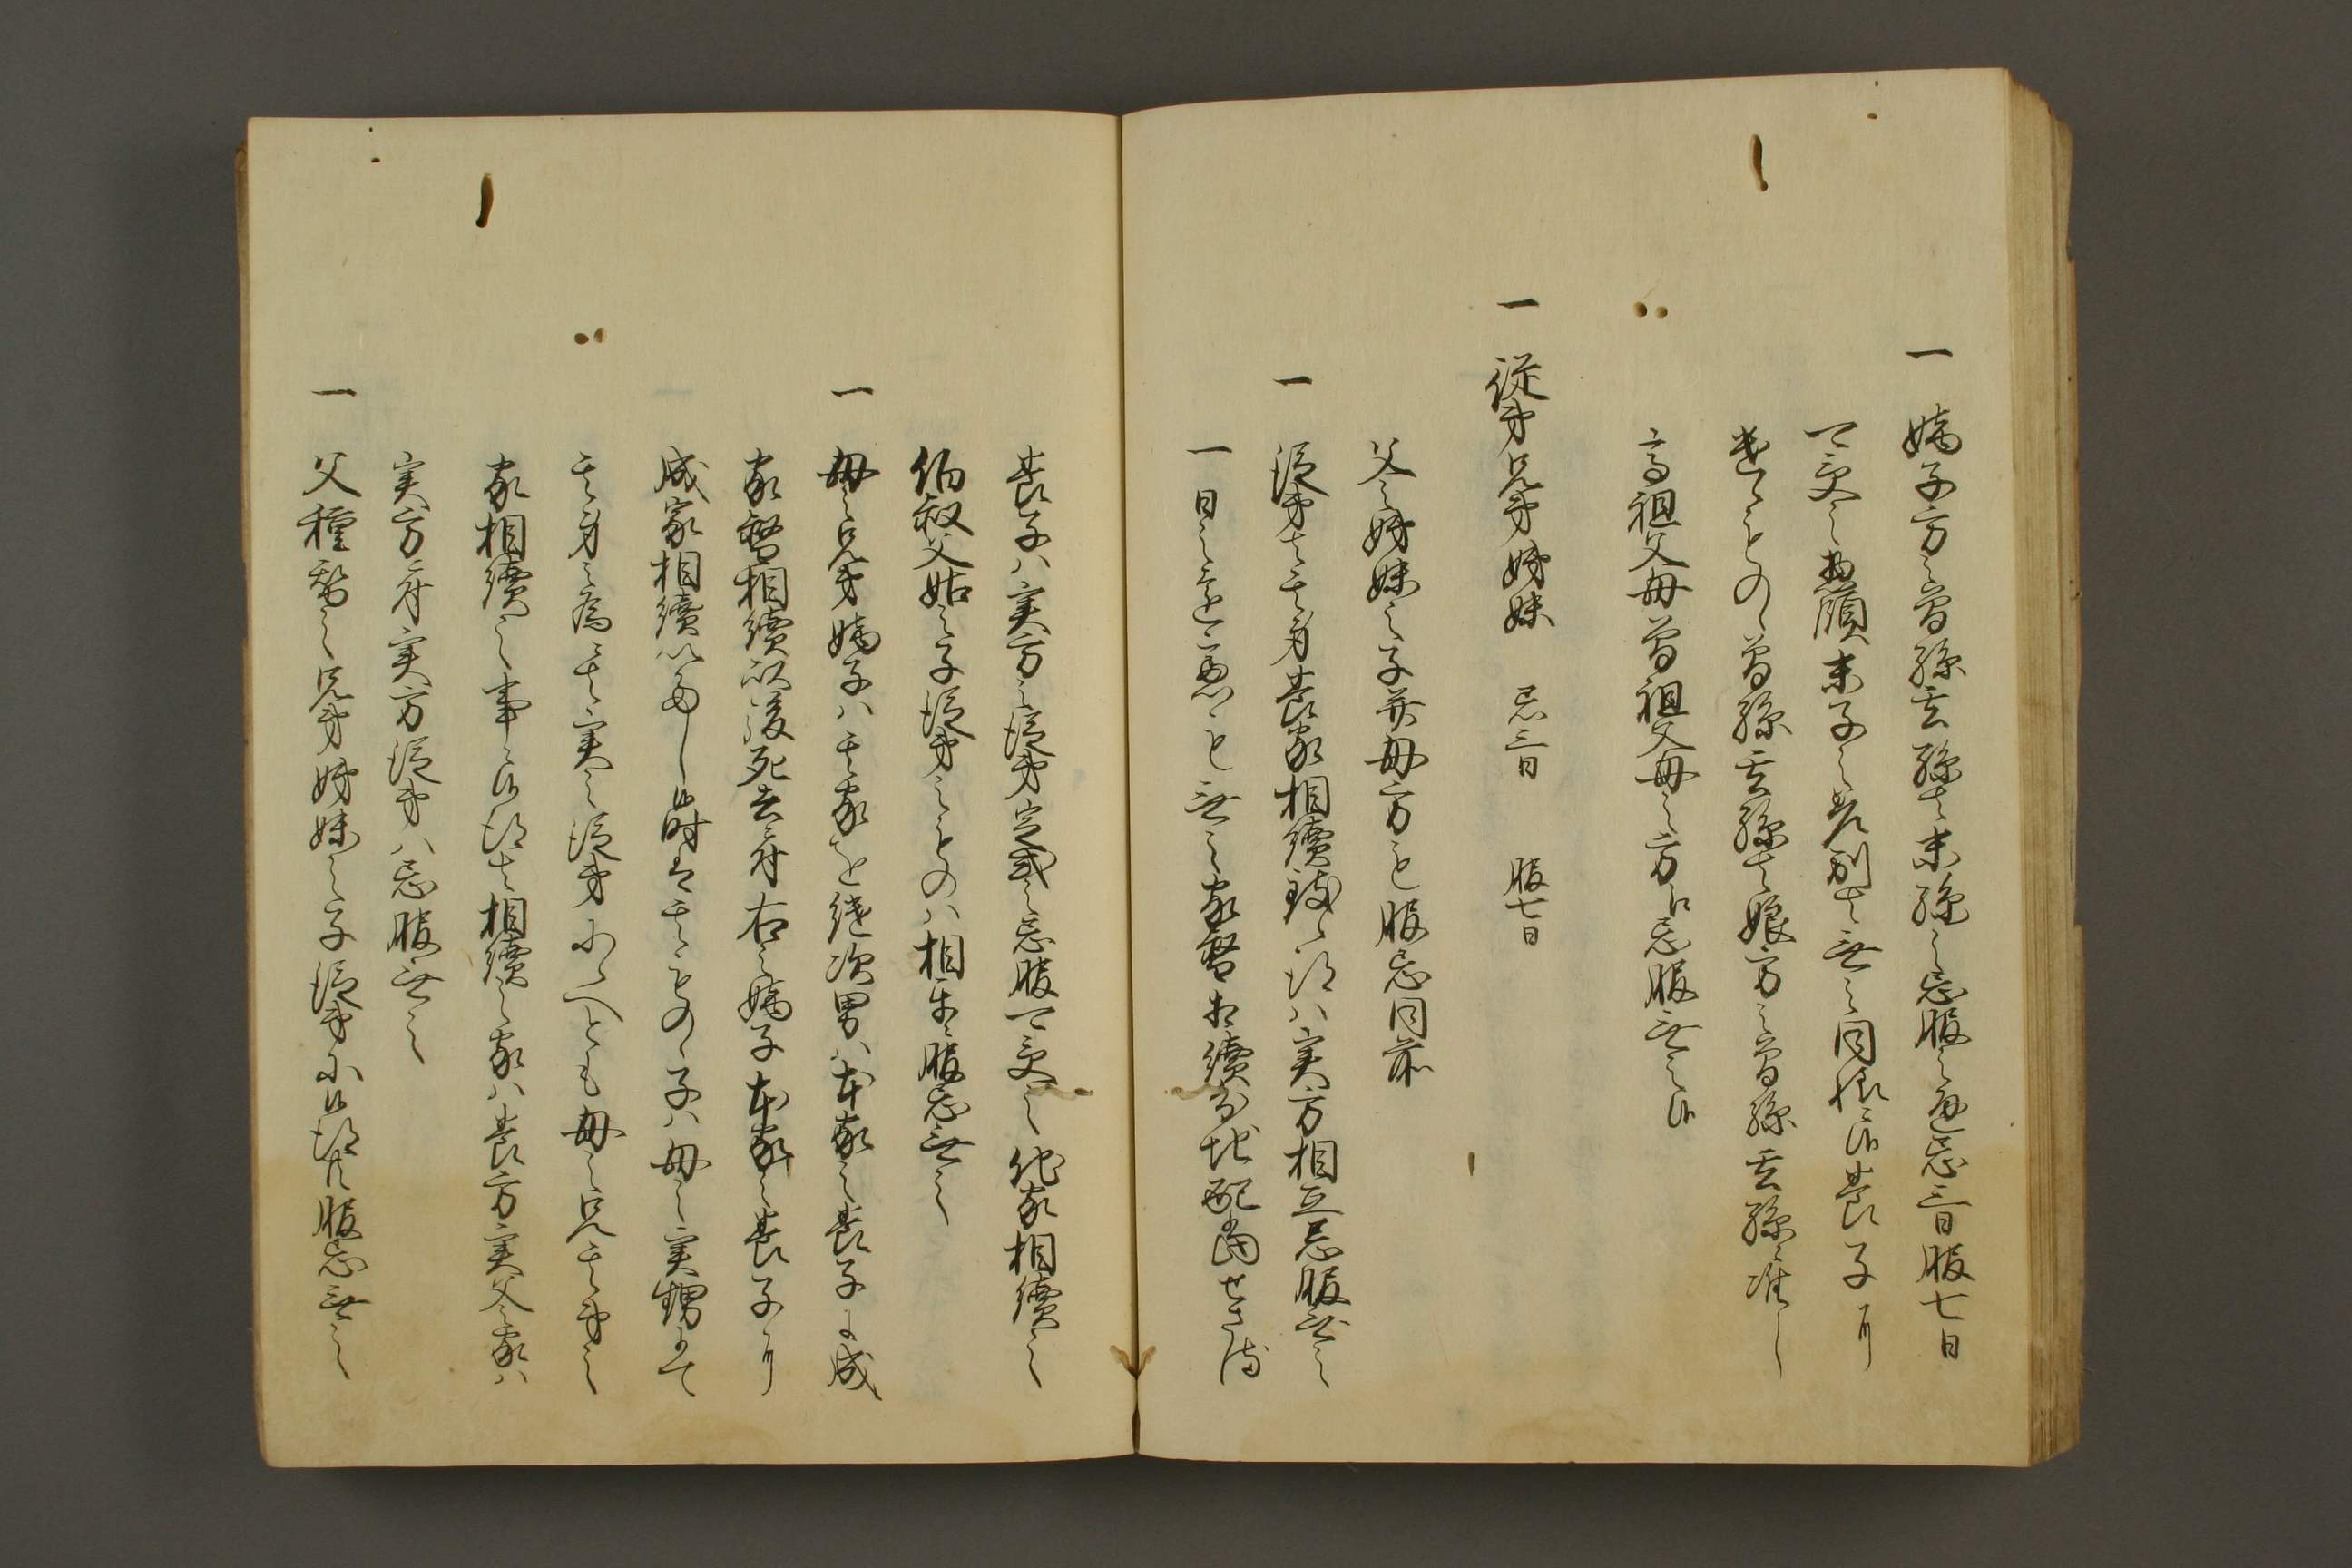 一 嫡子方之曽孫玄孫ハ末孫之忌服之通忌三日服七日
可受之惣領末子之差別ハ無之同様ニ候養子ニ
遣ものゝ曽孫玄孫ハ娘方之曽孫玄孫ニ准し
高祖父母曽祖父母之方ニ忌服無之候
一 従弟兄弟姉妹 忌三日 服七日
父之姉妹之子并母方も服忌同前
一 従弟ハ其身養家相續致候得ハ実方相互忌服無之
一日之違も無之家督相續分地配当せさる
養子ハ実方之従弟定式之忌服可受之他家相續之
伯叔父姑之子従弟之ものハ相互ニ服忌無之
一 母之兄弟嫡子ハ其家を継次男ハ本家之養子ニ成
家督相續以後死去ニ付右之嫡子本家之養子ニ
成家相續いたし候時ハ其ものゝ子ハ母之実甥にて
其身之為其実之従弟ニ候へとも母之兄其弟之
家相續之事ニ候得ハ相續之家ハ養方実父之家ハ
実方ニ付実方従弟ハ忌服無之
一 父種替之兄弟姉妹之子従弟ニ候得共服忌無之